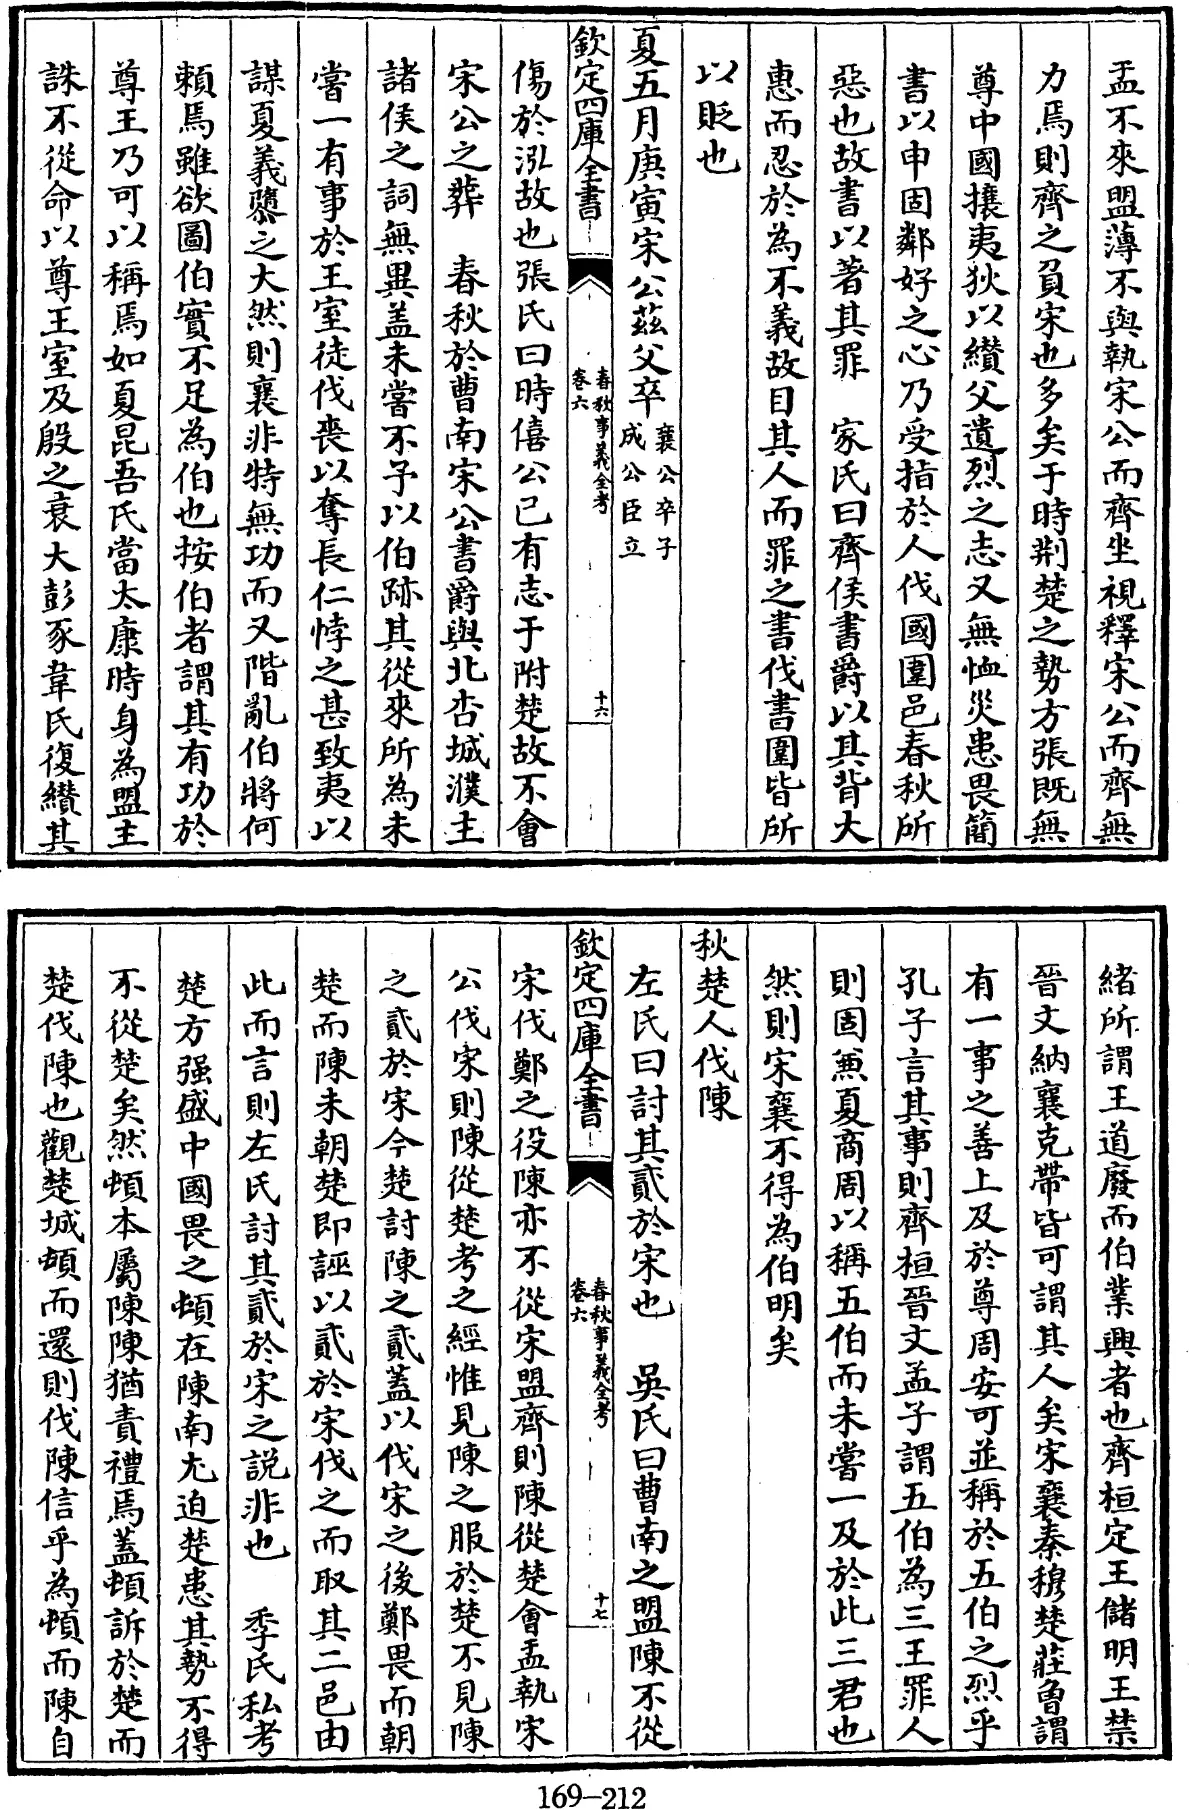 盂不來盟薄不與執宋公而齊坐視釋宋公而齊無
力焉則齊之負宋也多矣于時荆楚之勢方張既無
尊中國攘夷狄以纉父遺烈之志又無恤災患畏簡
書以申固鄰好之心乃受指於人伐國圍邑春秋所
惡也故書以著其罪　家氏曰齊侯書爵以其背大
惠而忍於為不義故目其人而罪之書伐書圍皆所
以貶也
夏五月庚寅宋公茲父卒襄公卒子成公臣立
欽定四庫全書　春秋事義全考　卷六　十六
傷於泓故也張氏曰時僖公已有志于附楚故不會
宋公之葬　春秋於曹南宋公書爵與北杏城濮主
諸侯之詞無異葢未嘗不予以伯跡其從來所為未
嘗一有事於王室徒伐喪以奪長仁悖之甚致夷以
謀夏義隳之大然則襄非特無功而又階亂伯將何
賴焉雖欲圖伯實不足為伯也按伯者謂其有功於
尊王乃可以稱焉如夏昆吾氏當太康時身為盟主
誅不從命以尊王室及殷之衰大彭豕韋氏復纉其
緒所謂王道廢而伯業興者也齊桓定王儲明王禁
晉文納襄克帶皆可謂其人矣宋襄秦穆楚莊魯謂
有一事之善上及於尊周安可並稱於五伯之烈乎
孔子言其事則齊桓晉文孟子謂五伯為三王罪人
則固兼夏商周以稱五伯而未嘗一及於此三君也
然則宋襄不得為伯明矣
秋楚人伐陳
左氏曰討其貳於宋也　吳氏曰曹南之盟陳不從
欽定四庫全書　春秋事義全考　卷六　十七
宋伐鄭之役陳亦不從宋盟齊則陳從楚會盂執宋
公伐宋則陳從楚考之經惟見陳之服於楚不見陳
之貳於宋今楚討陳之貳葢以伐宋之後鄭畏而朝
楚而陳未朝楚即誣以貳於宋伐之而取其二邑由
此而言則左氏討其貳於宋之説非也　季氏私考
楚方强盛中國畏之頓在陳南尤迫楚患其勢不得
不從楚矣然頓本屬陳陳猶責禮焉葢頓訴於楚而
楚伐陳也觀楚城頓而還則伐陳信乎為頓而陳自
169-212